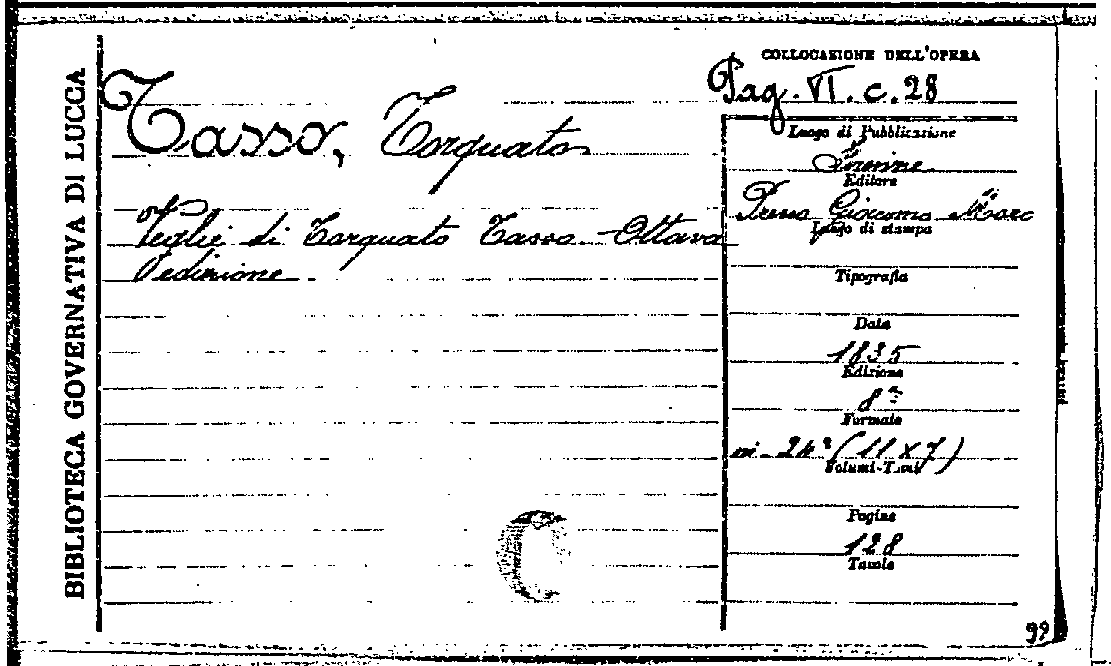 BIBLIOTECA GOVERNATIVA DI LUCCA
Tasso, Torquato
Veglie di Torquato Tasso - Ottava
edizione
COLLOCAZIONE DELL'OPERA
Pag. VI. c. 28
Luogo di Pubblicazione
Editore
Presso Giacomo
Luogo di stampa
Tipografia
Data
1835
Edizione
8ª
Formato
in-24° (11 x 7)
Volumi-Tomi
Pagine
128
Tavole
99